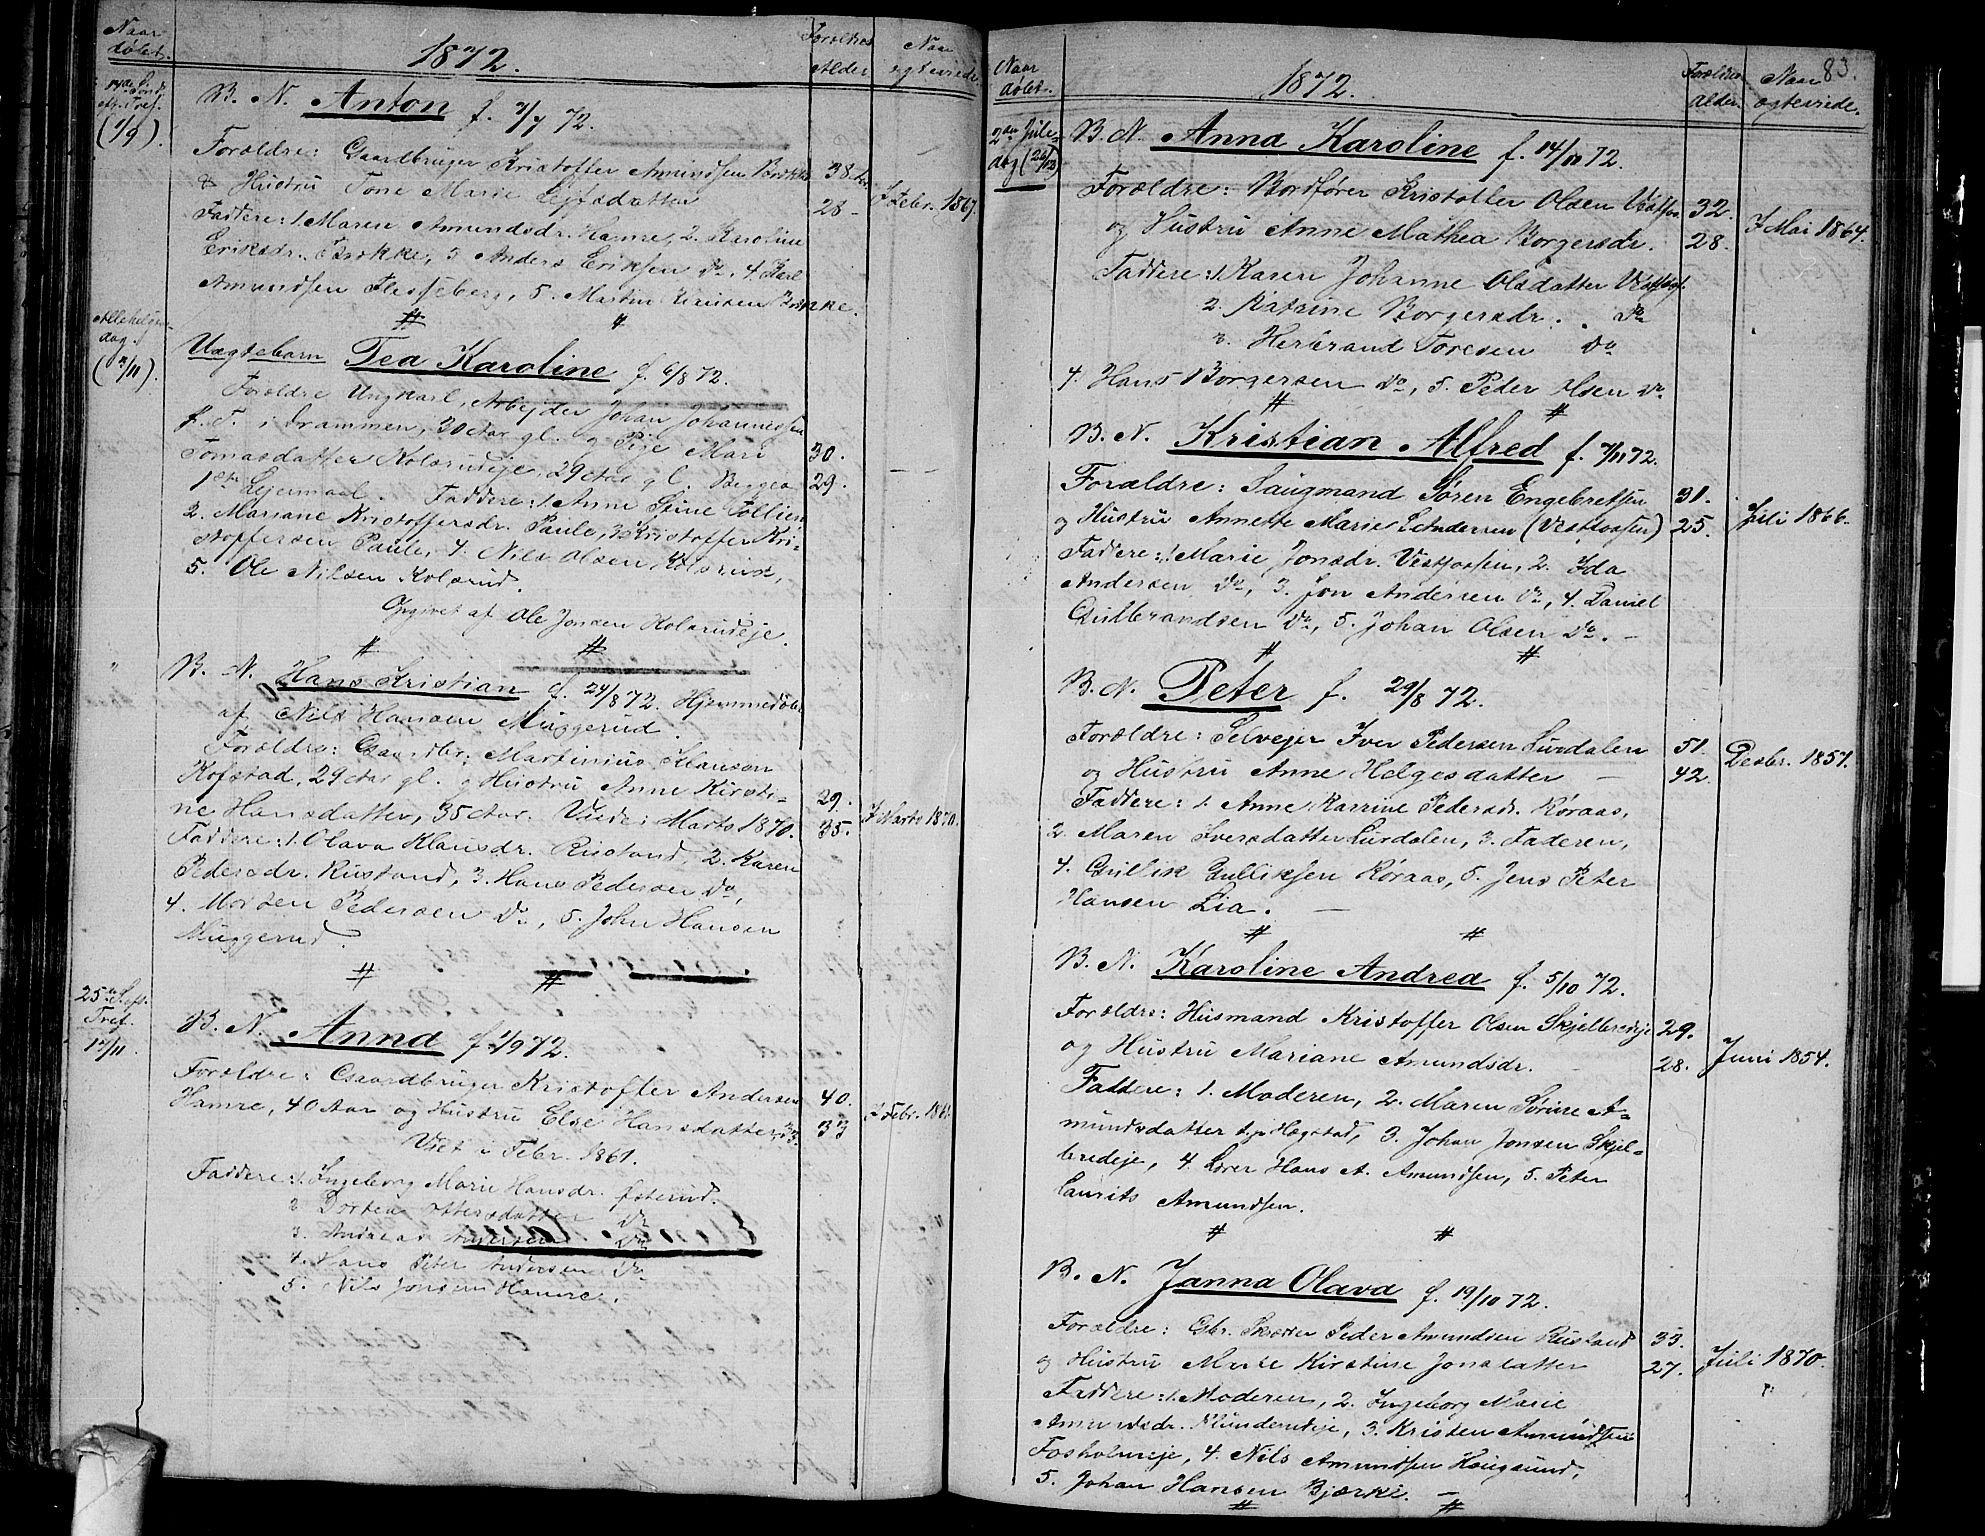 Naar
døbt.
1872.
Forældres
Alder
Naar
egteviede
14de S.
(1/9).
B. N. Anton f. 7/7 72.
Forældre: Gaardbruger Kristoffer Amundsen Brekke 38
& Hustru Tone Marie Lejfsdatter 28 - I Febr. 1867.
Faddere: 1. Maren Amundsdr. Hamre, 2. Karoline
Eriksdr. Brekke, 3 Anders Eriksen do, 4. Karl
Amundsen Flesseberg, 5. Martin
Allehelgen-
dag.
(3/11).
Uægtebarn Tea Karoline f. 6/8 72.
Forældre Ungkarl, Arbejder Johan Johannessen
f. T. i Drammen, 30 Aar gl. og Pige Mari 30.
Tomasdatter Kolsrudeje, 29 Aar gl. Begges 29.
1ste Lejermaal. Faddere: 1. Anne Stine Tollien
2. Mariane Kristoffersdr. Paule, 3 Kristoffer Kri-
stoffersen Paule, 4. Nils Olsen Kolsrud,
5. Ole Nilsen Kolsrud.
Opgivet af Ole Jonsen Kolsrudeje.
B. N. Hans Kristian f. 24/8 72. Hjemmedøbt
af Nils Hansen Muggerud.
Forældre: Gaardbr. Martinius Klausen
Kofstad, 29 Aar gl. og Hustru Anne Kirsti- 29.
ne Hansdatter, 35 Aar. Viede i Marts 1870. 35. I Marts 1870.
Faddere: 1. Olava Klausdr. Rustand, 2. Karen
Pedersdr. Rustand, 3. Hans Pedersen do,
4. Morten Pedersen do, 5. John Hansen
Muggerud.
25de S. eft.
Tref.
17/11.
B. N. Anna f. 1/9 72.
Forældre: Gaardbruger Kristoffer Andersen 40.
Hamre, 40 Aar og Hustru Else Hansdatter, 33. 33 I Febr. 1861.
Viet i Febr. 1861.
Faddere: 1. Ingeborg Marie Hansdr. Østerud.
2 Dortea Ottersdatter do
3. Andreas Andersen do
4. Hans Peter Andersen do
5. Nils Jonsen Hamre.
Naar
døbt.
1872.
Forældres
Alder.
Naar
egteviede.
83.
2den Jule-
dag (26/12)
B. N. Anna Karoline f. 14/11 72.
Forældre: Bordfører Kristoffer Olsen Vestfos. 32.
og Hustru Anne Mathea Borgersdr. 28. I Mai 1864.
Faddere: 1. Karen Johanne Olsdatter Vestfos.
2. Katrine Borgersdr. do
3. Herbrand Toresen do
4. Hans Borgersen do, 5. Peder Olsen do.
B. N. Kristian Alfred f. 7/11 72.
Forældre: Saugmand Søren Engebretsen 31.
og Hustru Annette Marie Andersen (Vestfossen) 25. Juli 1866.
Faddere: 1. Marie Jonsdr. Vestfossen, 2. Ida
Andersen do, 3. Jon Andersen do, 4. Daniel
Gulbrandsen do, 5. Johan Olsen do. -
B. N. Peter f. 29/8 72.
Forældre: Selvejer Iver Pedersen Surdalen 51.
og Hustru Anne Helgesdatter - 42. Decbr. 1857.
Faddere: 1. Anne Karrine Pedersdr. Røraas,
2. Maren Iversdatter Surdalen, 3. Faderen,
4. Gullik Gulliksen Røraas, 5. Jens Peter
Hansen Lia. -
B. N. Karoline Andrea f. 5/10 72.
Forældre: Husmand Kristoffer Olsen Skjelbredeje 29.
og Hustru Mariane Amundsdr. - 28. Juni 1854.
Faddere: 1. Moderen, 2. Maren Sørine A-
mundsdatter t.p. Hægstad, 3. Johan Jonsen Skjel-
bredeje, 4. Lærer Hans A. Amundsen, 5. Peter
Laurits Amundsen.
B. N. Janna Olava f. 19/10 72.
Forældre: Gbr. Skrædder Peder Amundsen Rustand 33.
og Hustru Marte Kirstine Jonsdatter 27. Juli 1870.
Faddere: 1. Moderen, 2. Ingeborg Marie
Amundsdr. Klunderudeje, 3. Kristen Amundsen
Fosholmeje, 4. Nils Amundsen Haugsund,
5. Johan Hansen Bjerke. -